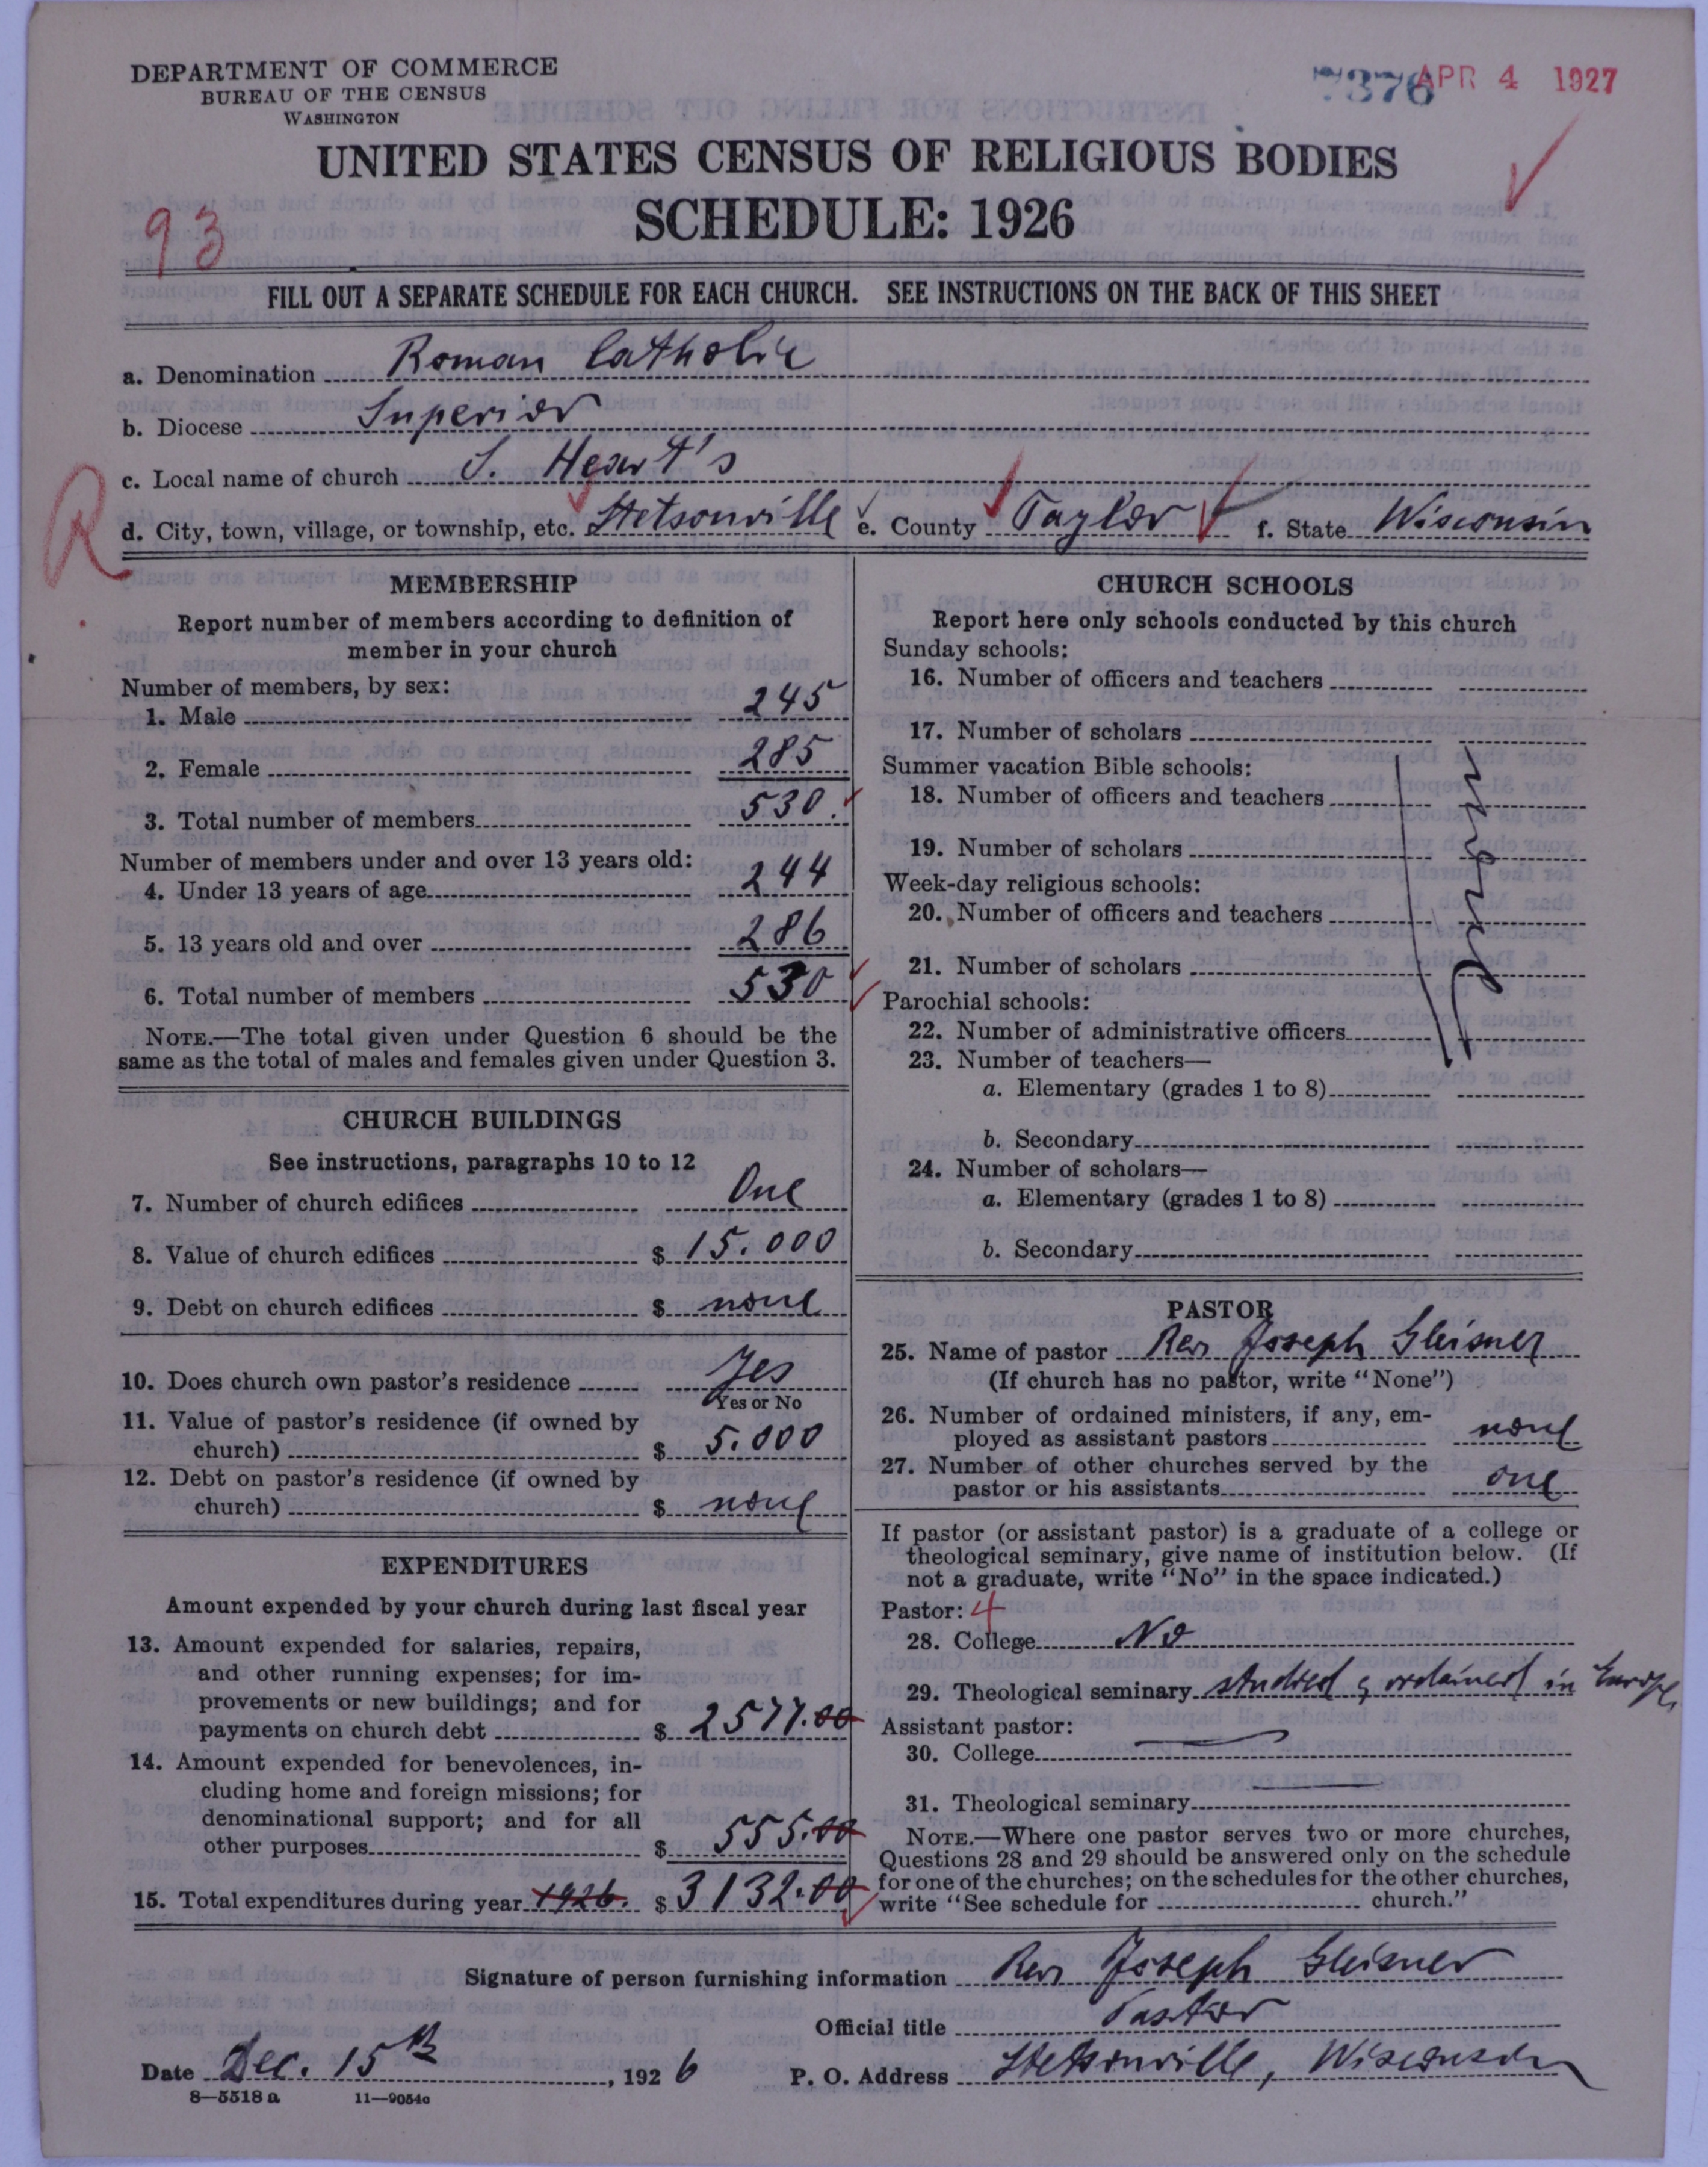 DEPARTMENT OF COMMERCE
BUREAU OF THE CENSUS
WASHINGTON
7376
APR 4 1927
UNITED STATES CENSUS OF RELIGIOUS BODIES
SCHEDULE: 1926
93
FILL OUT A SEPARATE SCHEDULE FOR EACH CHURCH. SEE INSTRUCTIONS ON THE BACK OF THIS SHEET
a. Denomination Roman Catholic
b. Diocese Superior
c. Local name of church S. Heart's
R
d. City, town, village, or township, etc. Stetsonville e. County Taylor f. State Wisconsin
MEMBERSHIP
Report number of members according to definition of
member in your church
Number of members, by sex:
1. Male 245
2. Female 285
3. Total number of members 530.
Number of members under and over 13 years old:
4. Under 13 years of age 244
5. 13 years old and over 286
6. Total number of members 530
NOTE.—The total given under Question 6 should be the
same as the total of males and females given under Question 3.
CHURCH BUILDINGS
See instructions, paragraphs 10 to 12
7. Number of church edifices One
8. Value of church edifices $ 15.000
9. Debt on church edifices $ none
10. Does church own pastor's residence Yes
Yes or No
11. Value of pastor's residence (if owned by
church) $ 5.000
12. Debt on pastor's residence (if owned by
church) $ none
EXPENDITURES
Amount expended by your church during last fiscal year
13. Amount expended for salaries, repairs,
and other running expenses; for im-
provements or new buildings; and for
payments on church debt $ 2577.00
14. Amount expended for benevolences, in-
cluding home and foreign missions; for
denominational support; and for all
other purposes $ 555.00
15. Total expenditures during year 1926. $ 3132.00
CHURCH SCHOOLS
Report here only schools conducted by this church
Sunday schools:
16. Number of officers and teachers
17. Number of scholars
Summer vacation Bible schools:
18. Number of officers and teachers
19. Number of scholars
Week-day religious schools:
20. Number of officers and teachers
21. Number of scholars
Parochial schools:
22. Number of administrative officers
23. Number of teachers—
a. Elementary (grades 1 to 8)
b. Secondary
24. Number of scholars—
a. Elementary (grades 1 to 8)
b. Secondary
PASTOR
25. Name of pastor Rev Joseph Gleisner
(If church has no pastor, write "None")
26. Number of ordained ministers, if any, em-
ployed as assistant pastors none
27. Number of other churches served by the
pastor or his assistants one
If pastor (or assistant pastor) is a graduate of a college or
theological seminary, give name of institution below. (If
not a graduate, write "No" in the space indicated.)
Pastor: 4
28. College No
29. Theological seminary studied & ordained in Europe
Assistant pastor:
30. College
31. Theological seminary
NOTE.—Where one pastor serves two or more churches,
Questions 28 and 29 should be answered only on the schedule
for one of the churches; on the schedules for the other churches,
write "See schedule for church."
Signature of person furnishing information Rev Joseph Gleisner
Official title Pastor
Date Dec. 15th, 1926 P. O. Address Stetsonville, Wisconsin
8—5518 a 11—9054a